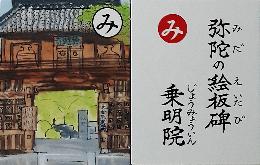 み
み
弥陀の絵板碑
みだ えいたび
乗明院
じょうみょういん